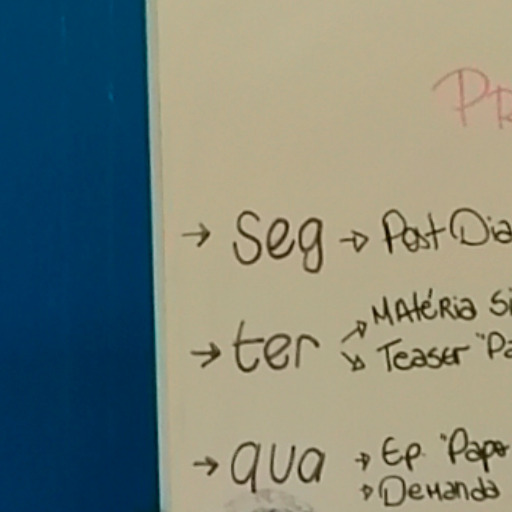 PR
→ seg → Post Dia
→ ter → MAtéRia Si
→ Teaser "Pa
→ qua → Ep. "Papo
→ Demanda